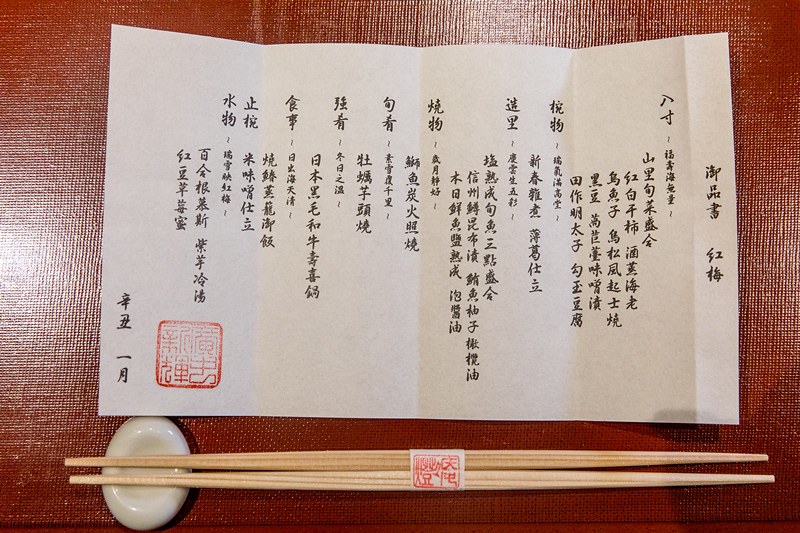 御品書 紅梅
入寸 ~福壽海無量~
山里旬菜盛合
紅白干柿 酒蒸海老
烏魚子 烏松風起士燒
黑豆 萵苣薹味噌漬
田作明太子 勾玉豆腐
椀物 ~瑞氣滿高堂~
新春雜煮 薄葛仕立
造里 ~慶雲生五彩~
塩熟成旬魚三點盛合
信州鱒昆布漬 鮪魚柚子橄欖油
本日鮮魚鹽熟成 泡醬油
燒物 ~歲月靜好~
鰤魚炭火照燒
旬肴 ~素雪覆千里~
牡蠣芋頭燒
強肴 ~冬日之溫~
日本黑毛和牛壽喜鍋
食事 ~日出海天清~
燒鰆蒸籠御飯
止椀
米味噌仕立
水物 ~瑞雪映紅梅~
百合根慕斯 紫芋冷湯
紅豆草莓蜜
辛丑 一月